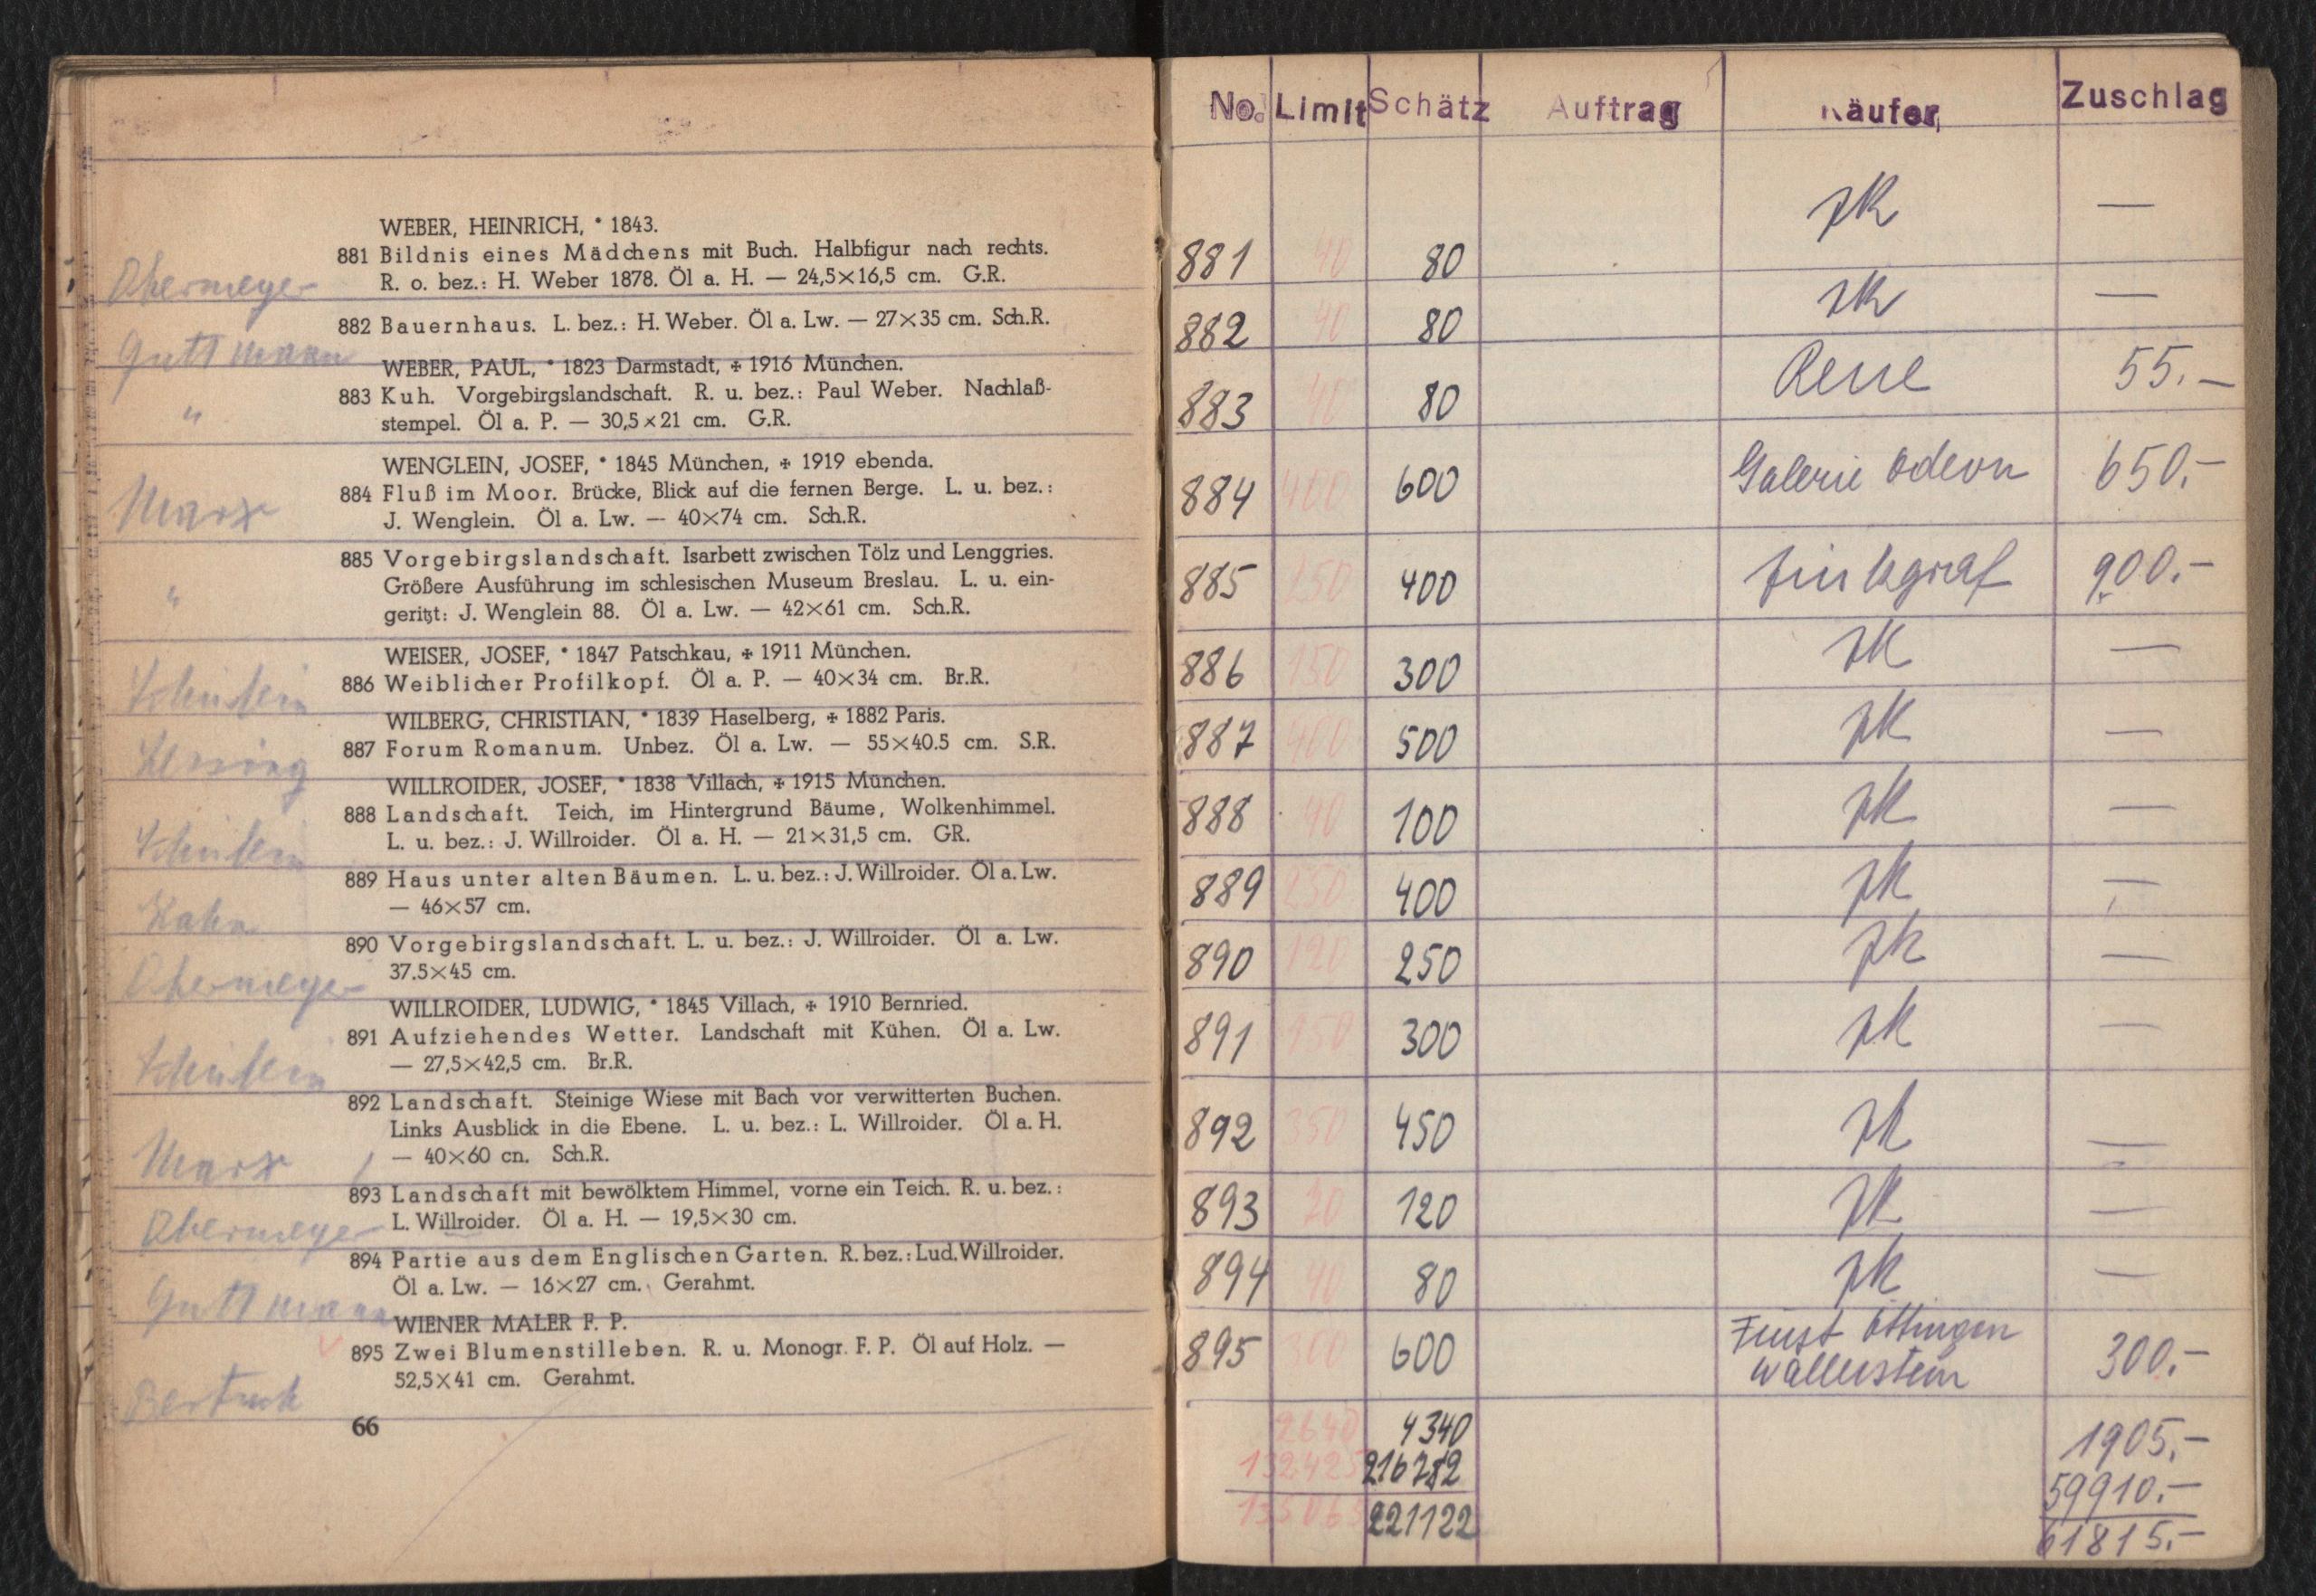 WEBER, HEINRICH, * 1843.
881 Bildnis eines Mädchens mit Buch. Halbfigur nach rechts.
R. o. bez.: H. Weber 1878. Öl a. H. — 24,5×16,5 cm. G.R.
Obermeyer
882 Bauernhaus. L. bez.: H. Weber. Öl a. Lw. — 27×35 cm. Sch.R.
Guttmann
WEBER, PAUL, * 1823 Darmstadt, ✠ 1916 München.
883 Kuh. Vorgebirgslandschaft. R. u. bez.: Paul Weber. Nachlaß-
stempel. Öl a. P. — 30,5×21 cm. G.R.
"
WENGLEIN, JOSEF, * 1845 München, ✠ 1919 ebenda.
884 Fluß im Moor. Brücke, Blick auf die fernen Berge. L. u. bez.:
J. Wenglein. Öl a. Lw. — 40×74 cm. Sch.R.
Marx
885 Vorgebirgslandschaft. Isarbett zwischen Tölz und Lenggries.
Größere Ausführung im schlesischen Museum Breslau. L. u. ein-
geritzt: J. Wenglein 88. Öl a. Lw. — 42×61 cm. Sch.R.
"
WEISER, JOSEF, * 1847 Patschkau, ✠ 1911 München.
886 Weiblicher Profilkopf. Öl a. P. — 40×34 cm. Br.R.
Schülein
WILBERG, CHRISTIAN, * 1839 Haselberg, ✠ 1882 Paris.
887 Forum Romanum. Unbez. Öl a. Lw. — 55×40.5 cm. S.R.
Lessing
WILLROIDER, JOSEF, * 1838 Villach, ✠ 1915 München.
888 Landschaft. Teich, im Hintergrund Bäume, Wolkenhimmel.
L. u. bez.: J. Willroider. Öl a. H. — 21×31,5 cm. GR.
Schülein
889 Haus unter alten Bäumen. L. u. bez.: J. Willroider. Öl a. Lw.
— 46×57 cm.
Hahn
890 Vorgebirgslandschaft. L. u. bez.: J. Willroider. Öl a. Lw.
37.5×45 cm.
Obermeyer
WILLROIDER, LUDWIG, * 1845 Villach, ✠ 1910 Bernried.
891 Aufziehendes Wetter. Landschaft mit Kühen. Öl a. Lw.
— 27,5×42,5 cm. Br.R.
Schülein
892 Landschaft. Steinige Wiese mit Bach vor verwitterten Buchen.
Links Ausblick in die Ebene. L. u. bez.: L. Willroider. Öl a. H.
— 40×60 cn. Sch.R.
Marx
893 Landschaft mit bewölktem Himmel, vorne ein Teich. R. u. bez.:
L. Willroider. Öl a. H. — 19,5×30 cm.
Obermeyer
894 Partie aus dem Englischen Garten. R. bez.: Lud. Willroider.
Öl a. Lw. — 16×27 cm. Gerahmt.
Guttmann
WIENER MALER F. P.
895 Zwei Blumenstilleben. R. u. Monogr. F. P. Öl auf Holz. —
52,5×41 cm. Gerahmt.
66
No. Limit Schätz Auftrag Käufer Zuschlag
881 40 80 zk —
882 40 80 zk —
883 40 80 55.—
884 400 600 Galerie Odeon 650.—
885 250 400 Finkgraf 900.—
886 150 300 zk —
887 400 500 zk —
888 40 100 zk —
889 250 400 zk —
890 120 250 zk —
891 150 300 zk —
892 350 450 zk —
893 70 120 zk —
894 40 80 zk —
895 300 600 Fürst Öttingen
Wallerstein 300.—
2640 4340 1905.—
132425 216782 59910.—
135065 221122 61815.—